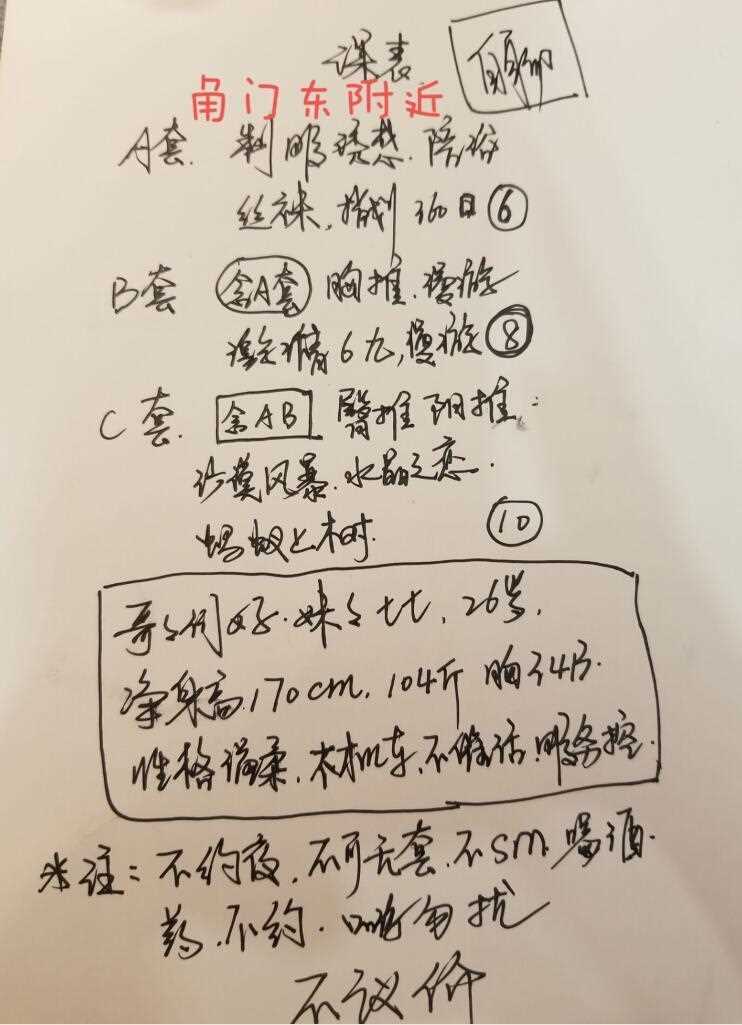 课表
角门东附近
A套. 制服诱惑. 陪浴
丝袜. 指划 360 ⑥
B套 含A套 胸推. 漫游
6九, 漫游 ⑧
C套. 含AB 臀推 阴推:
沙漠风暴. 水晶之恋.
蚂蚁上树. ⑩
哥々们好. 妹々七七, 26岁,
净身高170cm. 104斤 胸34B.
性格温柔. 不机车. 不催活. 服务控.
※注: 不约夜. 不可无套. 不sm. 喝酒.
药. 不约. 勿扰
不议价